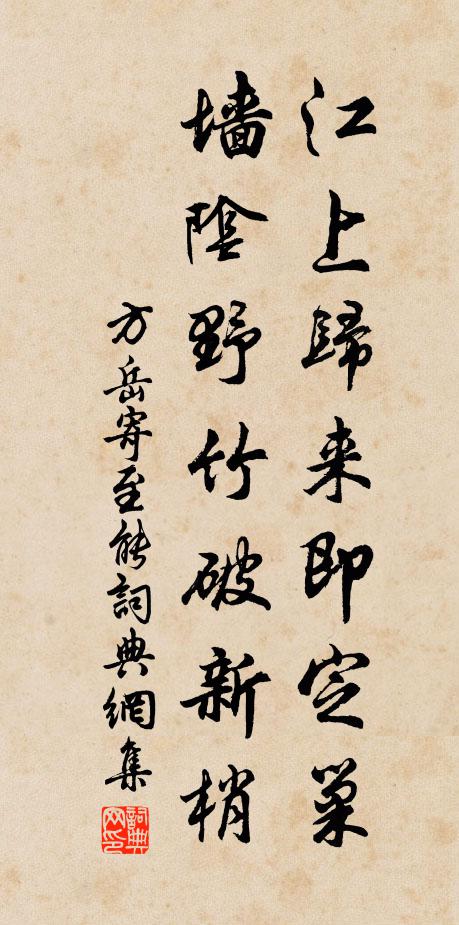 江上歸来即定巢
墙陰野竹破新梢
方岳寄至能詞典網集
詞典網印